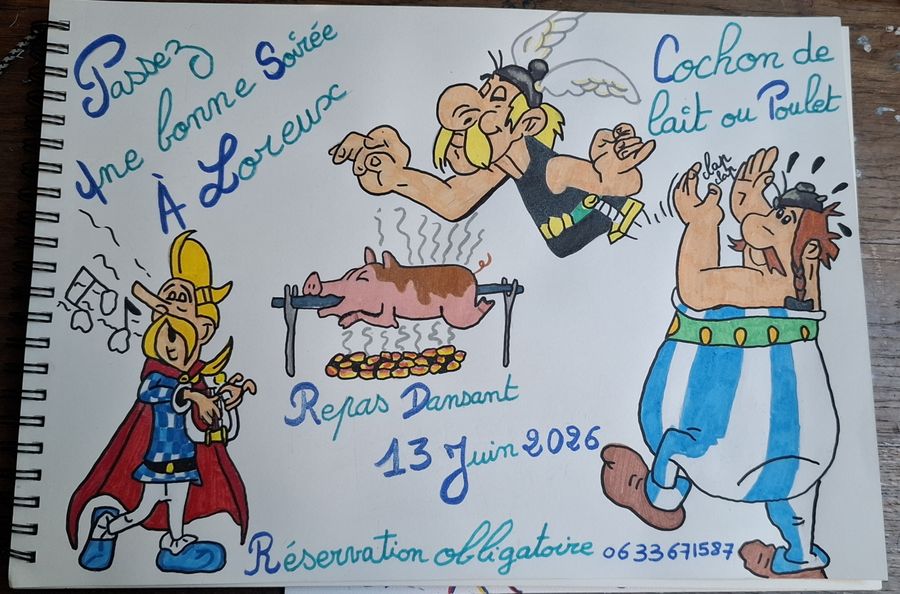 Passez
Une bonne Soirée
À Loreux
Cochon de
lait ou Poulet
clap
clap
Repas Dansant
13 Juin 2026
Réservation obligatoire 0633671587